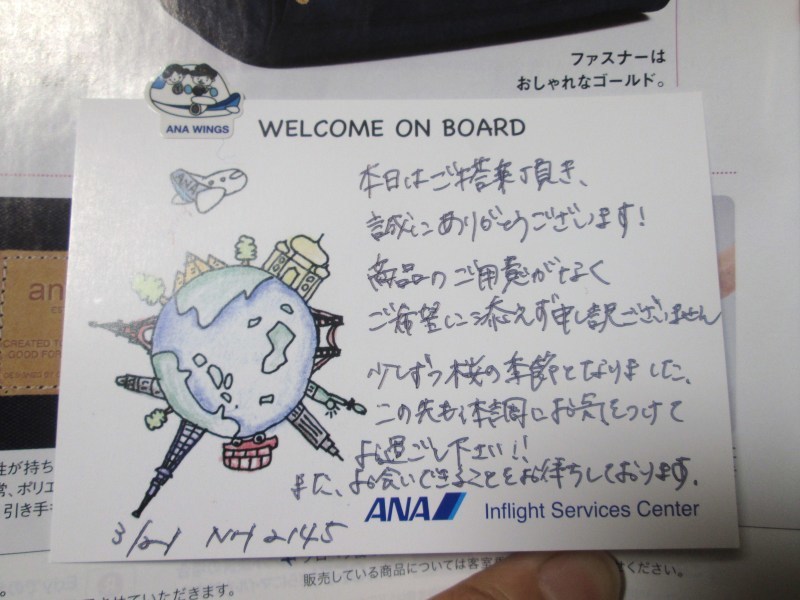 ファスナーは
おしゃれなゴールド。
ANA WINGS
WELCOME ON BOARD
ANA
本日はご搭乗頂き、
誠にありがとうございます!
商品のご用意がなく
ご希望に添えず申し訳ございません
少しずつ桜の季節となりました、
この先も体調にお気をつけて
お過ごし下さい!!
また、お会いできることをお待ちしております。
an
CREATED
GOOD FOR
性が持ち
常、ポリエ
引き手
ANA Inflight Services Center
3/21 NH2145
販売している商品については客室
ください。
させていただきます。